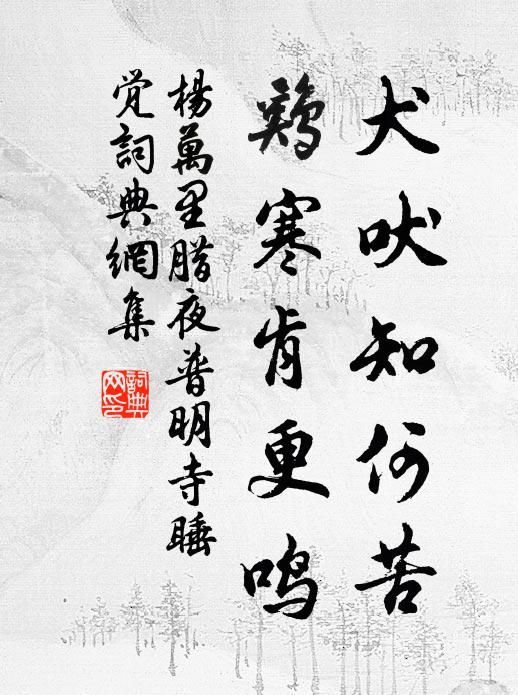 犬吠知何苦
鷄寒肯更鸣
楊萬里腊夜普明寺睡
覺詞典網集
詞典
网印